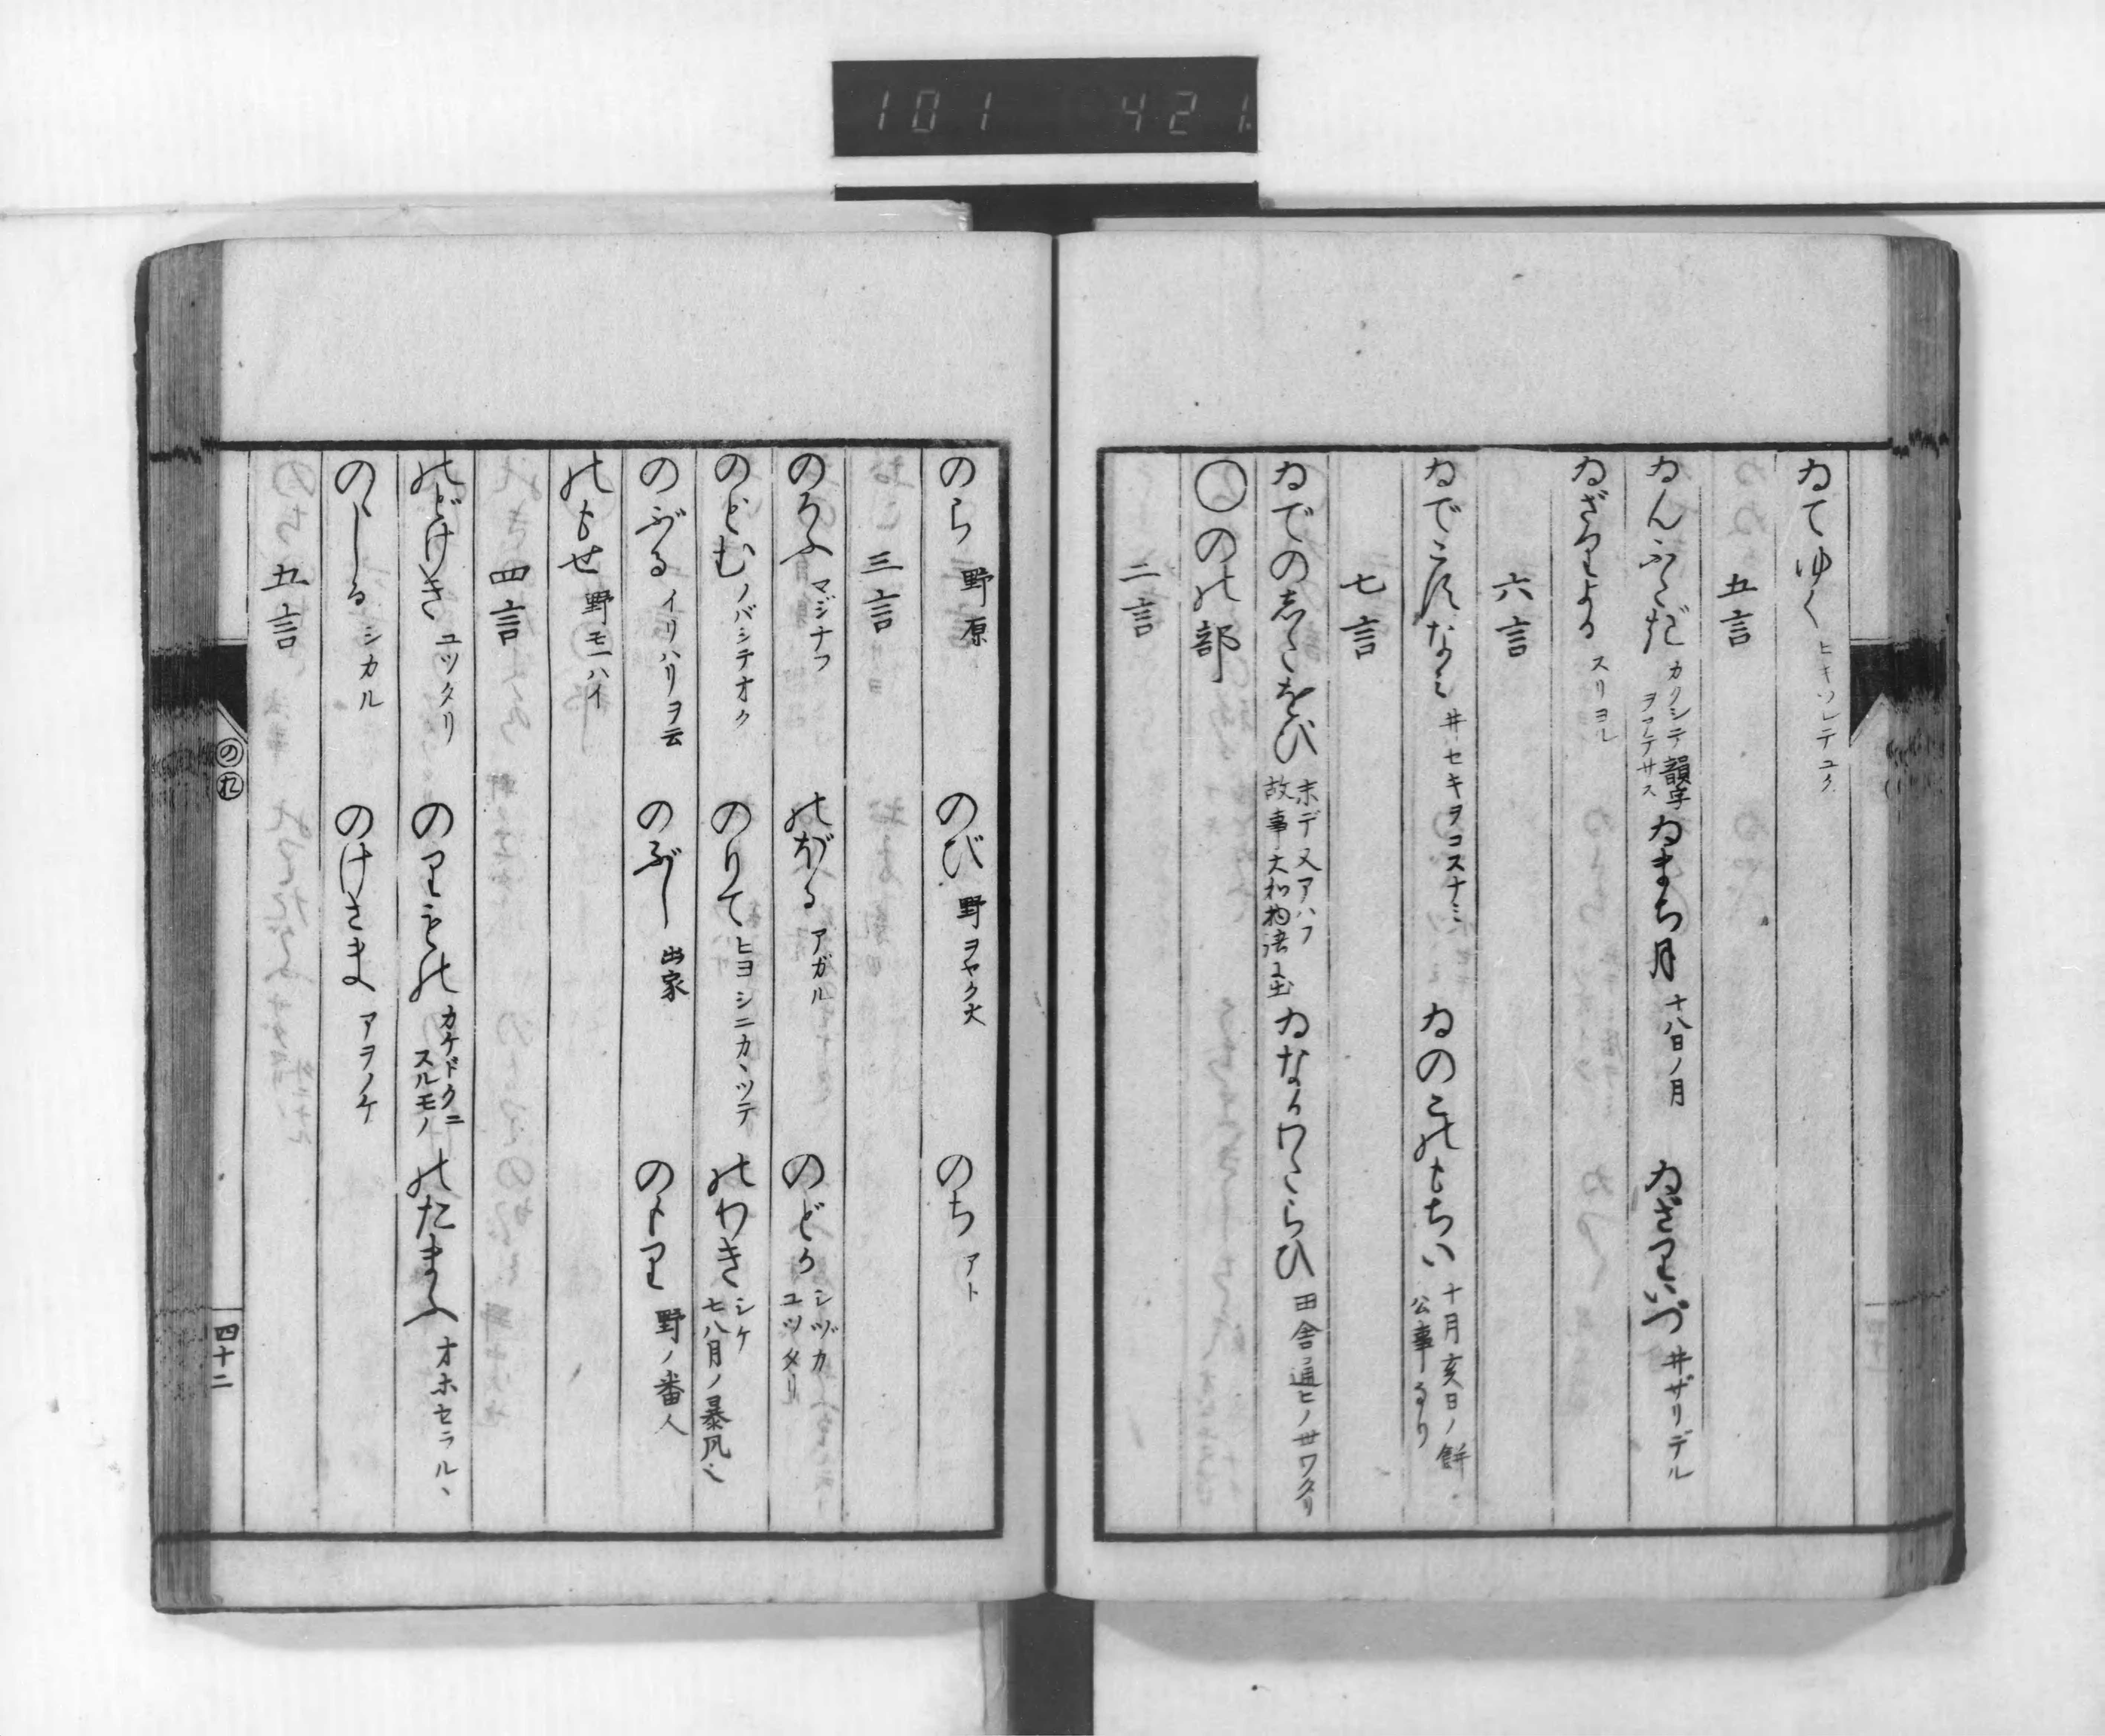 101 421
ゐてゆく ヒキツレテユク
五言
ゐんふたぎ カクシテ韻字ヲアテサス ゐまち月 十八日ノ月 ゐざりいづ ヰザリデル
ゐざりよる スリヨル
六言
ゐでこすなミ 井セキヲコスナミ ゐのこのもちい 十月亥日ノ餅 公事なり
七言
ゐでのしたおび 末デ又アハフ 故事大和物語 ゐなかわたらひ 田舎通ヒノ世ワタリ
〇のの部
二言
のら 野原 のび 野ヲヤク火 のち アト
三言
のろふ マジナフ のぼる アガル のどか シヅカ ユツタリ
のどむ ノバシテオク のりて ヒヨシニカヽツテ のわき シケ 七八月ノ暴風也
のぶる イリハリヲ云 のぶし 出家 のもり 野ノ番人
のもせ 野モ一ハイ
四言
のどけき ユツタリ のりもの カケドクニスルモノ のたまふ オホセラルヽ
のゝしる シカル のけさま アヲノケ
五言
の
四十二